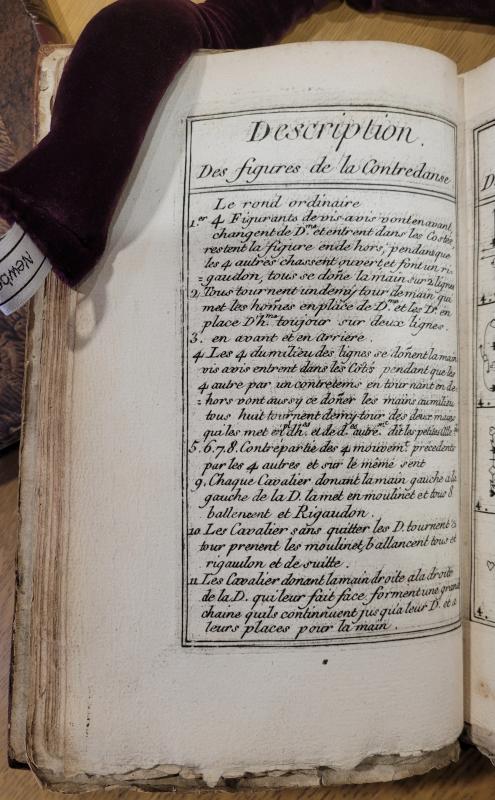 Description.
Des figures de la Contredanse
Le rond ordinaire
1.er 4 Figurants de vis avis vont en avant,
changent de D.me et entrent dans les Costés,
restent la figure en de hors, pendant que
les 4 autres chassent ouvert et font un ri-
=gaudon, tous se doñe la main sur 2 lignes
2. Tous tournent un demy tour de main qui
met les hom̃es en place de D.me et les D.es en
place D'h.me toujour sur deux lignes.
3. en avant et en arriere.
4. Les 4 du milieu des lignes se doñent la main
vis avis entrent dans les Côtés pendant que les
4 autre par un contretems en tournant en de
=hors vont aussy ce doñer les mains au milieu
tous huit tournent demy tour des deux mains
qui les met en pl. d'h.es et de d.es autrem.t dit les petites
5. 6. 7. 8. Contrepartie des 4 mouvem.t precedents
par les 4 autres et sur le même sent
9. Chaque Cavalier donant la main gauche ala
gauche de la D. la met en moulinet et tous 8
ballencent et Rigaudon.
10 Les Cavalier sans quitter les D. tournent
tour prenent les moulinet, ballancent tous et
rigaudon et de suitte.
11 Les Cavalier donant la main droite ala droite
de la D. qui leur fait face, forment une grande
chaine quils continnuent jusqu'a leur D. et a
leurs places pour la main.
Newb